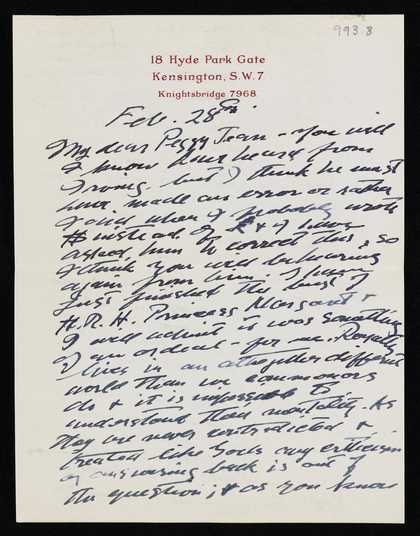 993.8
18 Hyde Park Gate
Kensington, S.W.7
Knightsbridge 7968
Feb. 28th.
My dear Peggy Jean - You will
I know have heard from
Irving. but I think he must
have made an error or rather
I did when I probably wrote
$ instead of £ & I have
asked him to correct this, so
I think you will be hearing
again from him. I have
just finished the bust of
H.R.H. Princess Margaret &
I will admit it was something
of an ordeal - for me. Royalty
lives in an altogether different
world than we commoners
do & it is impossible to
understand their mentality. As
they are never contradicted &
treated like Gods any criticism
or answering back is out of
the question; & as you know